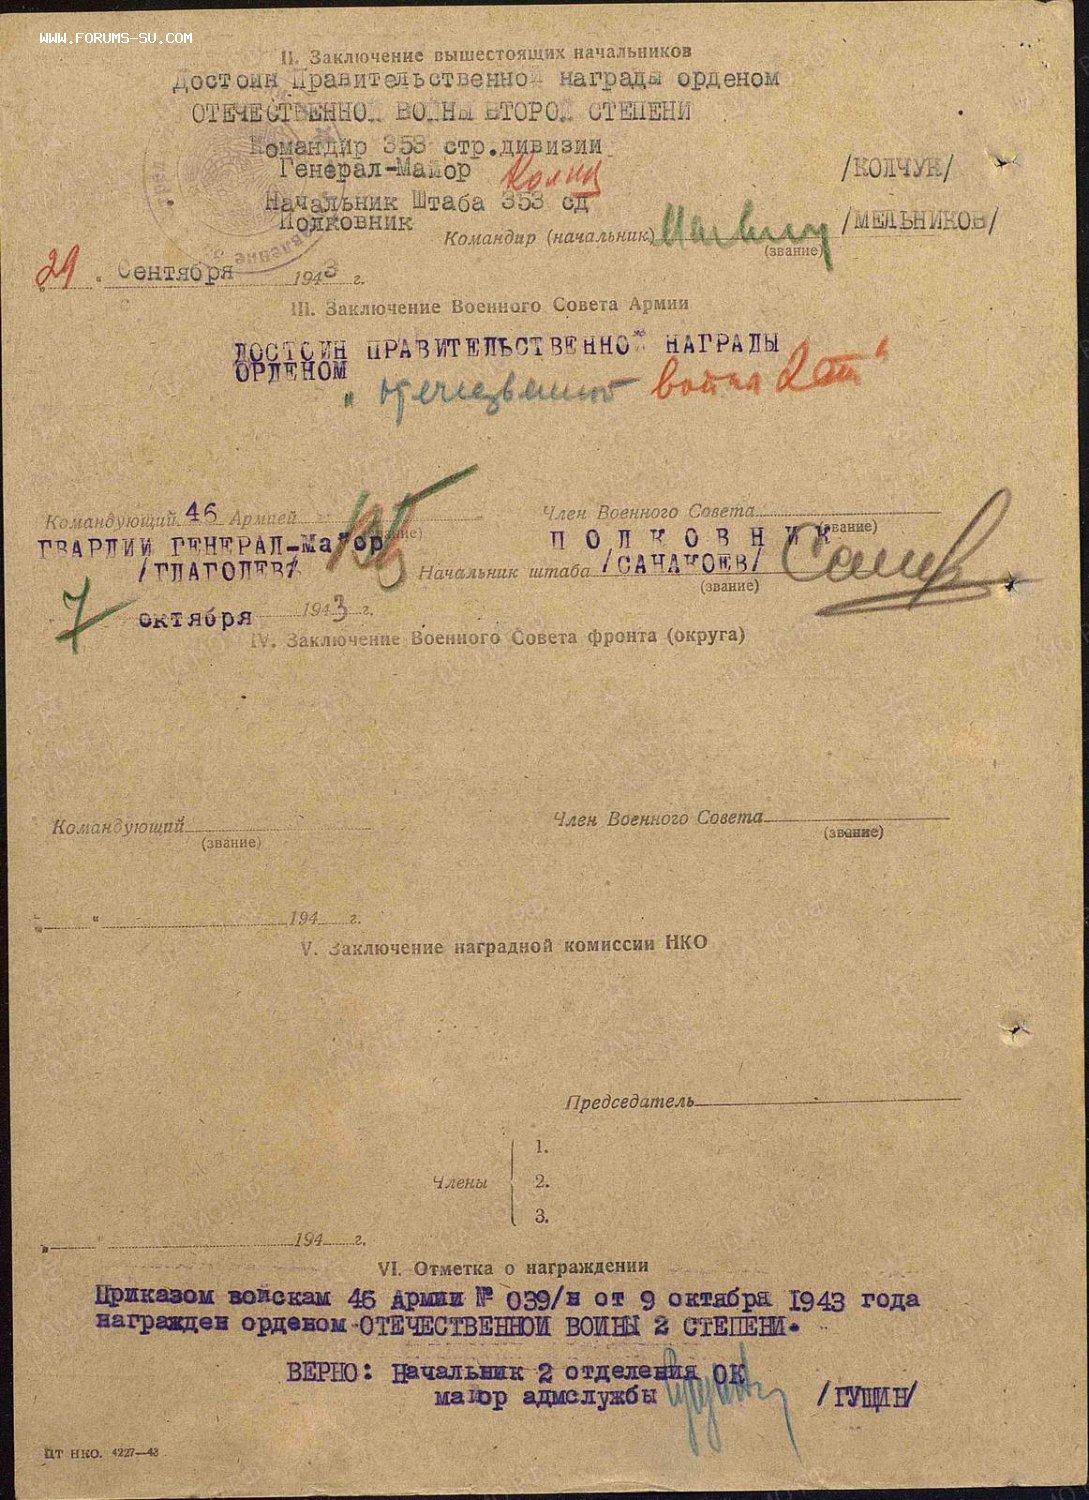 WWW.FORUMS-SU.COM
II. Заключение вышестоящих начальников
Достоин Правительственной награды орденом
ОТЕЧЕСТВЕННОЙ ВОЙНЫ ВТОРОЙ СТЕПЕНИ
Командир 353 стр.дивизии
Генерал-Майор /КОЛЧУК/
Начальник Штаба 353 сд
Полковник /МЕЛЬНИКОВ/
Командир (начальник)
(звание)
29 " Сентября 1943 г.
III. Заключение Военного Совета Армии
ДОСТОИН ПРАВИТЕЛЬСТВЕННОЙ НАГРАДЫ
ОРДЕНОМ
"Отечественной война 2 ст"
Командующий 46 Армией Член Военного Совета
(звание) (звание)
ГВАРДИИ ГЕНЕРАЛ-Майор ПОЛКОВНИК
/ГЛАГОЛЕВ/ Начальник штаба /САНАКОЕВ/
(звание)
7 октября 1943 г.
IV. Заключение Военного Совета фронта (округа)
Командующий Член Военного Совета
(звание) (звание)
" " 194 г.
V. Заключение наградной комиссии НКО
Председатель
1.
Члены 2.
3.
" " 194 г.
VI. Отметка о награждении
Приказом войскам 46 Армии № 039/н от 9 октября 1943 года
награжден орденом ОТЕЧЕСТВЕННОЙ ВОЙНЫ 2 СТЕПЕНИ.
ВЕРНО: Начальник 2 отделения ОК
майор адмслужбы /ГУЩИН/
ЦТ НКО. 4227—43